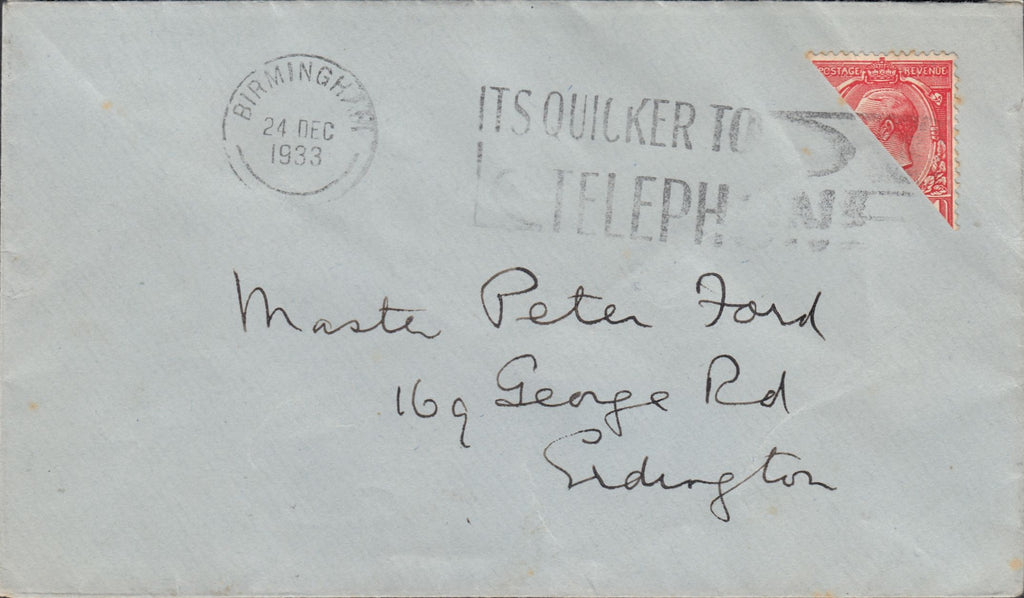 POSTAGE REVENUE
BIRMINGHAM
24 DEC
1933
ITS QUICKER TO
TELEPHONE
Master Peter Ford
169 George Rd
Erdington